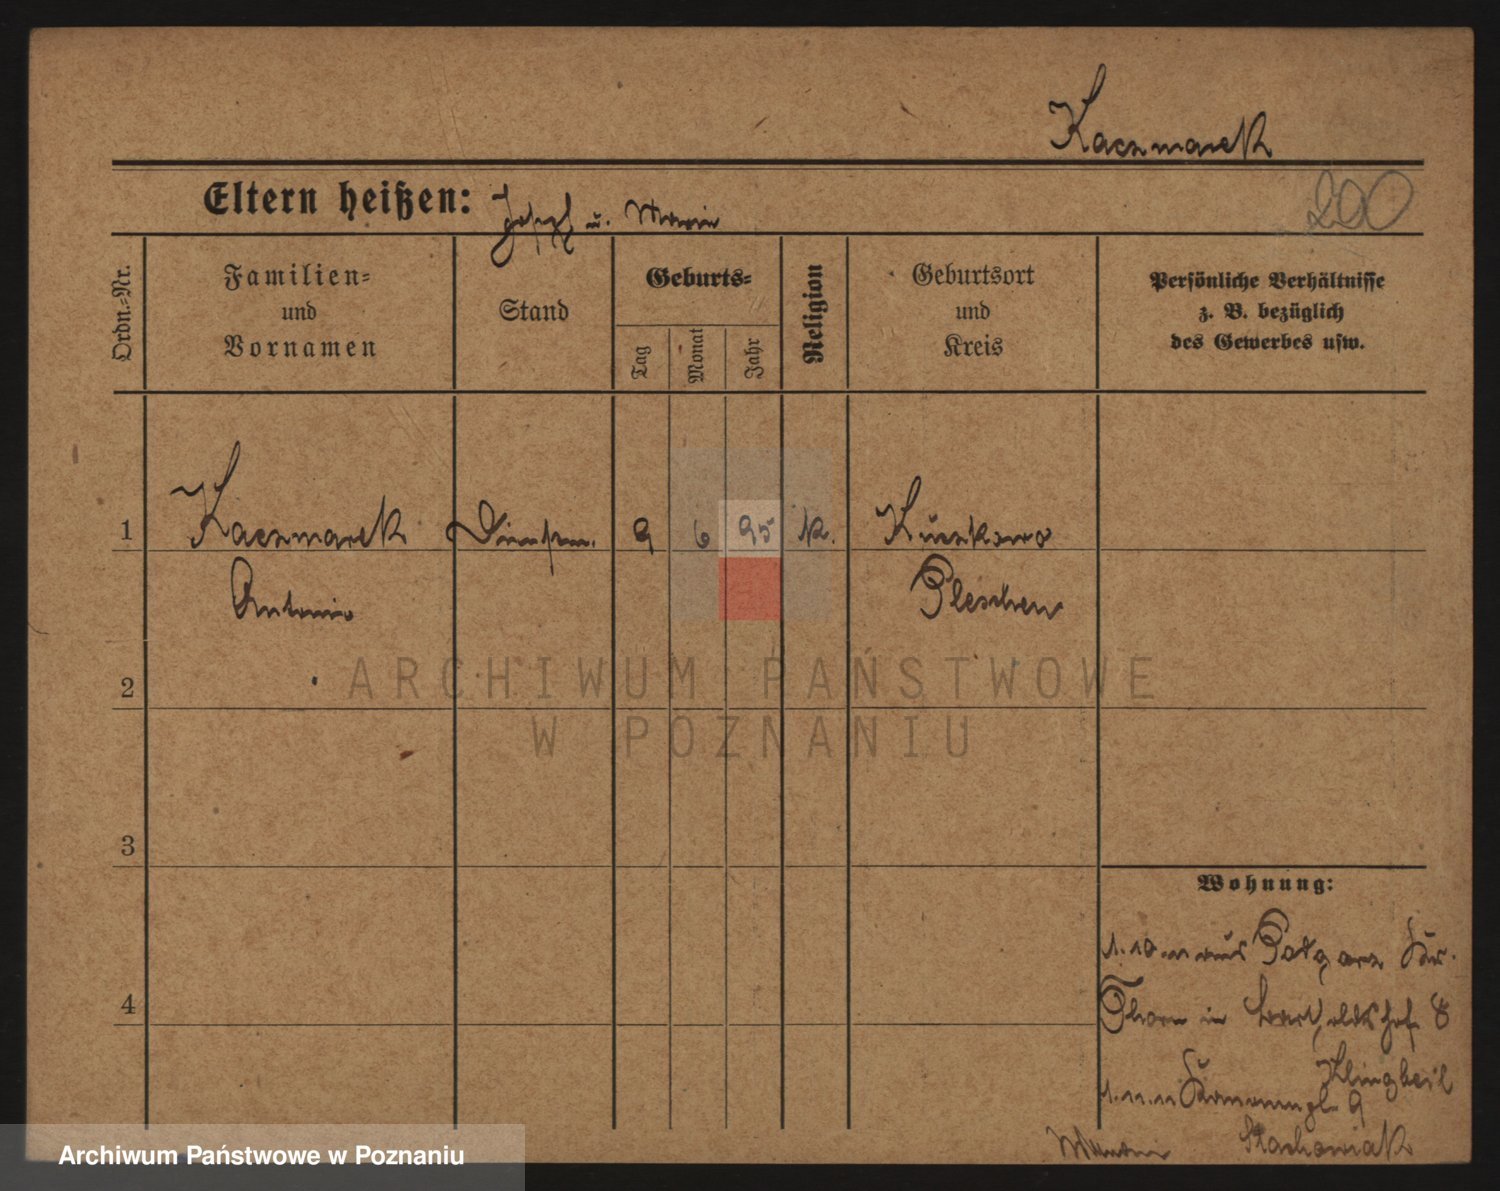 Kaczmarek
200
Eltern heißen: Josef u. Marie
Ordn.-Nr.
Familien-
und
Vornamen
Stand
Geburts-
Tag
Monat
Jahr
Religion
Geburtsort
und
Kreis
Persönliche Verhältnisse
z. B. bezüglich
des Gewerbes usw.
1 Kaczmarek 9 6 95 k. Kuczkowo
Antonie Pleschen
2
3
4
Wohnung:
1.10.11 aus Kr.
Thorn in Bartholdshof 8
Klingbeil
1.11.11 9
Stachowiak
ARCHIWUM PAŃSTWOWE
W POZNANIU
Archiwum Państwowe w Poznaniu